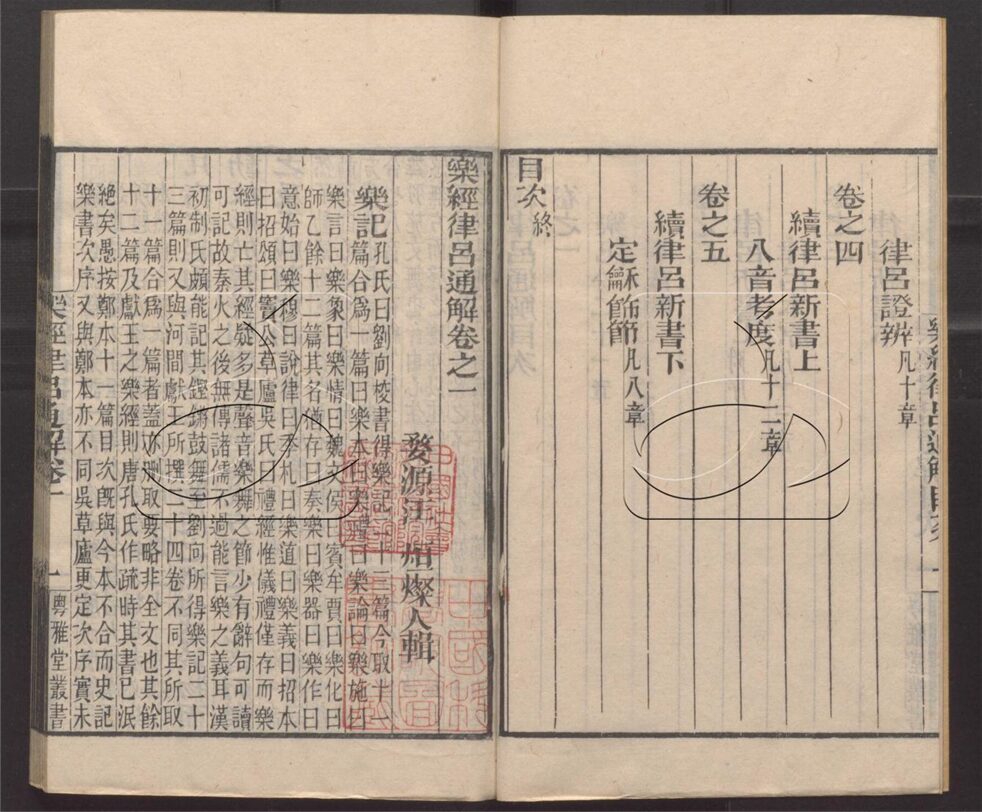 律呂證辨凡十章
卷之四
續律呂新書上
八音考度凡十二章
卷之五
續律呂新書下
定龢飾節凡八章
目次終
樂經律呂通解卷之一
婺源汪 烜燦人輯
樂記孔氏曰劉向校書得樂記二十三篇今取十一
篇合爲一篇曰樂本曰樂論曰樂施曰
樂言曰樂象曰樂情曰魏文侯曰賓牟賈曰樂化曰
師乙餘十二篇其名猶存曰奏樂曰樂器曰樂作曰
意始曰樂穆曰說律曰季札曰樂道曰樂義曰招本
曰招頌曰竇公草廬吳氏曰禮經惟儀禮僅存而樂
經則亡其經疑多是聲音樂舞之節少有辭句可讀
可記故秦火之後無傳諸儒不過能言樂之義耳漢
初制氏頗能記其鏗鏘鼓舞至劉向所得樂記二十
三篇則又與河間獻王所撰二十四卷不同其所取
十一篇合爲一篇者蓋亦刪取要略非全文也其餘
十二篇及獻王之樂經則唐孔氏作疏時其書已泯
絶矣愚按鄭本十一篇目次既與今本不合而史記
樂書次序又與鄭本亦不同吳草廬更定次序實未
樂經律呂通解卷一
一
粵雅堂叢書